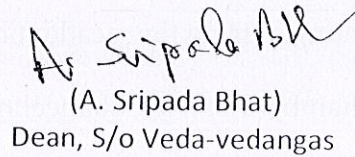 A. Sripada Bh
(A. Sripada Bhat)
Dean, S/o Veda-vedangas